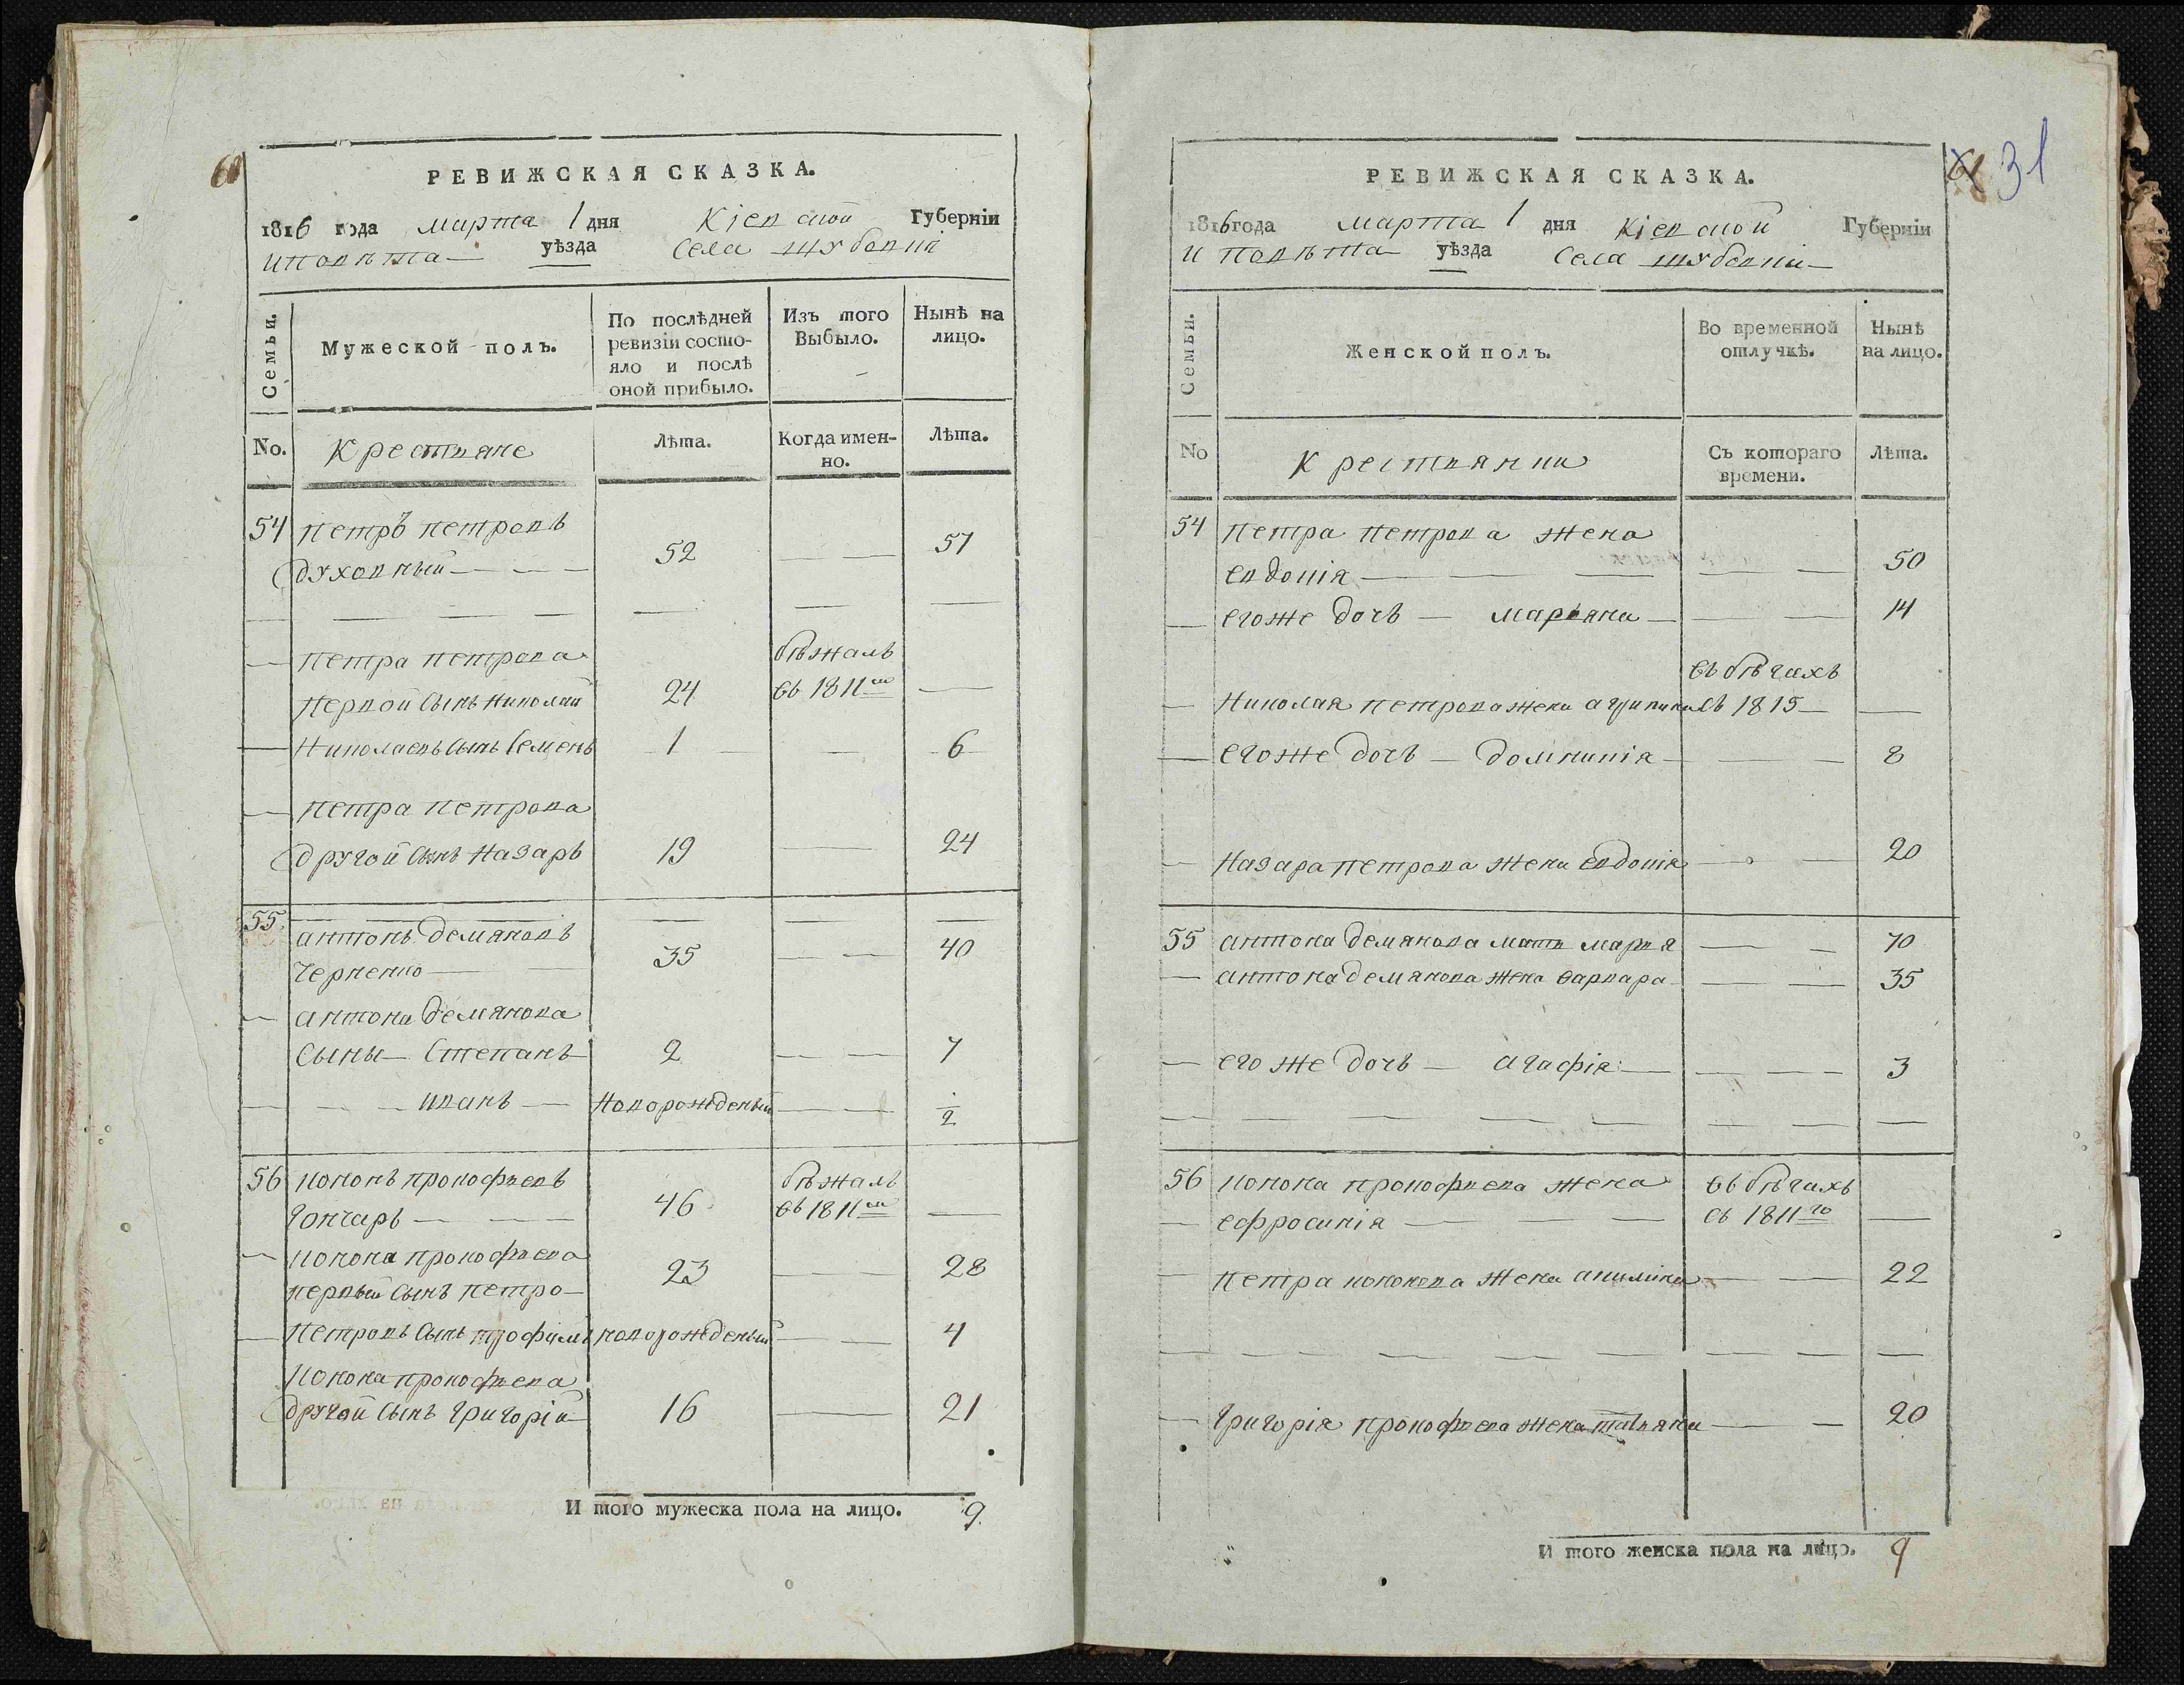 60
РЕВИЖСКАЯ СКАЗКА.
1816 года марта 1 дня Кіевской Губерніи
и повѣта уѣзда Села Шубевки
Семьи.
Мужеской полъ.
По послѣдней ревизіи состояло и послѣ оной прибыло.
Изъ того Выбыло.
Нынѣ на лицо.
No. Крестяне Лѣта. Когда именно. Лѣта.
54 Петръ петровъ
духовный 52 57
Петра петрова бѣжалъ
первой сынъ Николай 24 въ 1811м
Николаевъ сынъ Семенъ 1 6
Петра петрова
другой сынъ Назаръ 19 24
55 антонъ демяновъ
Черненко 35 40
антона демянова
сыны Степанъ 2 7
иванъ новорожденый 1/2
56 кононъ прокофьевъ бѣжалъ
Гончаръ 46 въ 1811м
конона прокофьева
первый сынъ петро 23 28
Петровъ сынъ трофимъ новорожденый 4
конона прокофьева
другой сынъ Григорій 16 21
И того мужеска пола на лицо. 9.
31
РЕВИЖСКАЯ СКАЗКА.
1816 года марта 1 дня Кіевской Губерніи
и повѣта уѣзда Села Шубевки
Семьи.
Женской полъ.
Во временной отлучкѣ.
Нынѣ на лицо.
No Крестянки Съ котораго времени. Лѣта.
54 Петра Петрова жена
евдокія 50
егоже дочь маряна 14
въ бѣгахъ
Николая петрова жена агрипина съ 1815
егоже дочь домникія 8
Назара петрова жена евдокія 20
55 антона демянова мать марья 70
антона демянова жена варвара 35
его же дочь агафія 3
56 конона прокофьева жена въ бѣгахъ
ефросинія съ 1811го
Петра кононова жена акилина 22
Григорія прокофьева жена татьяна 20
И того женска пола на лицо. 9